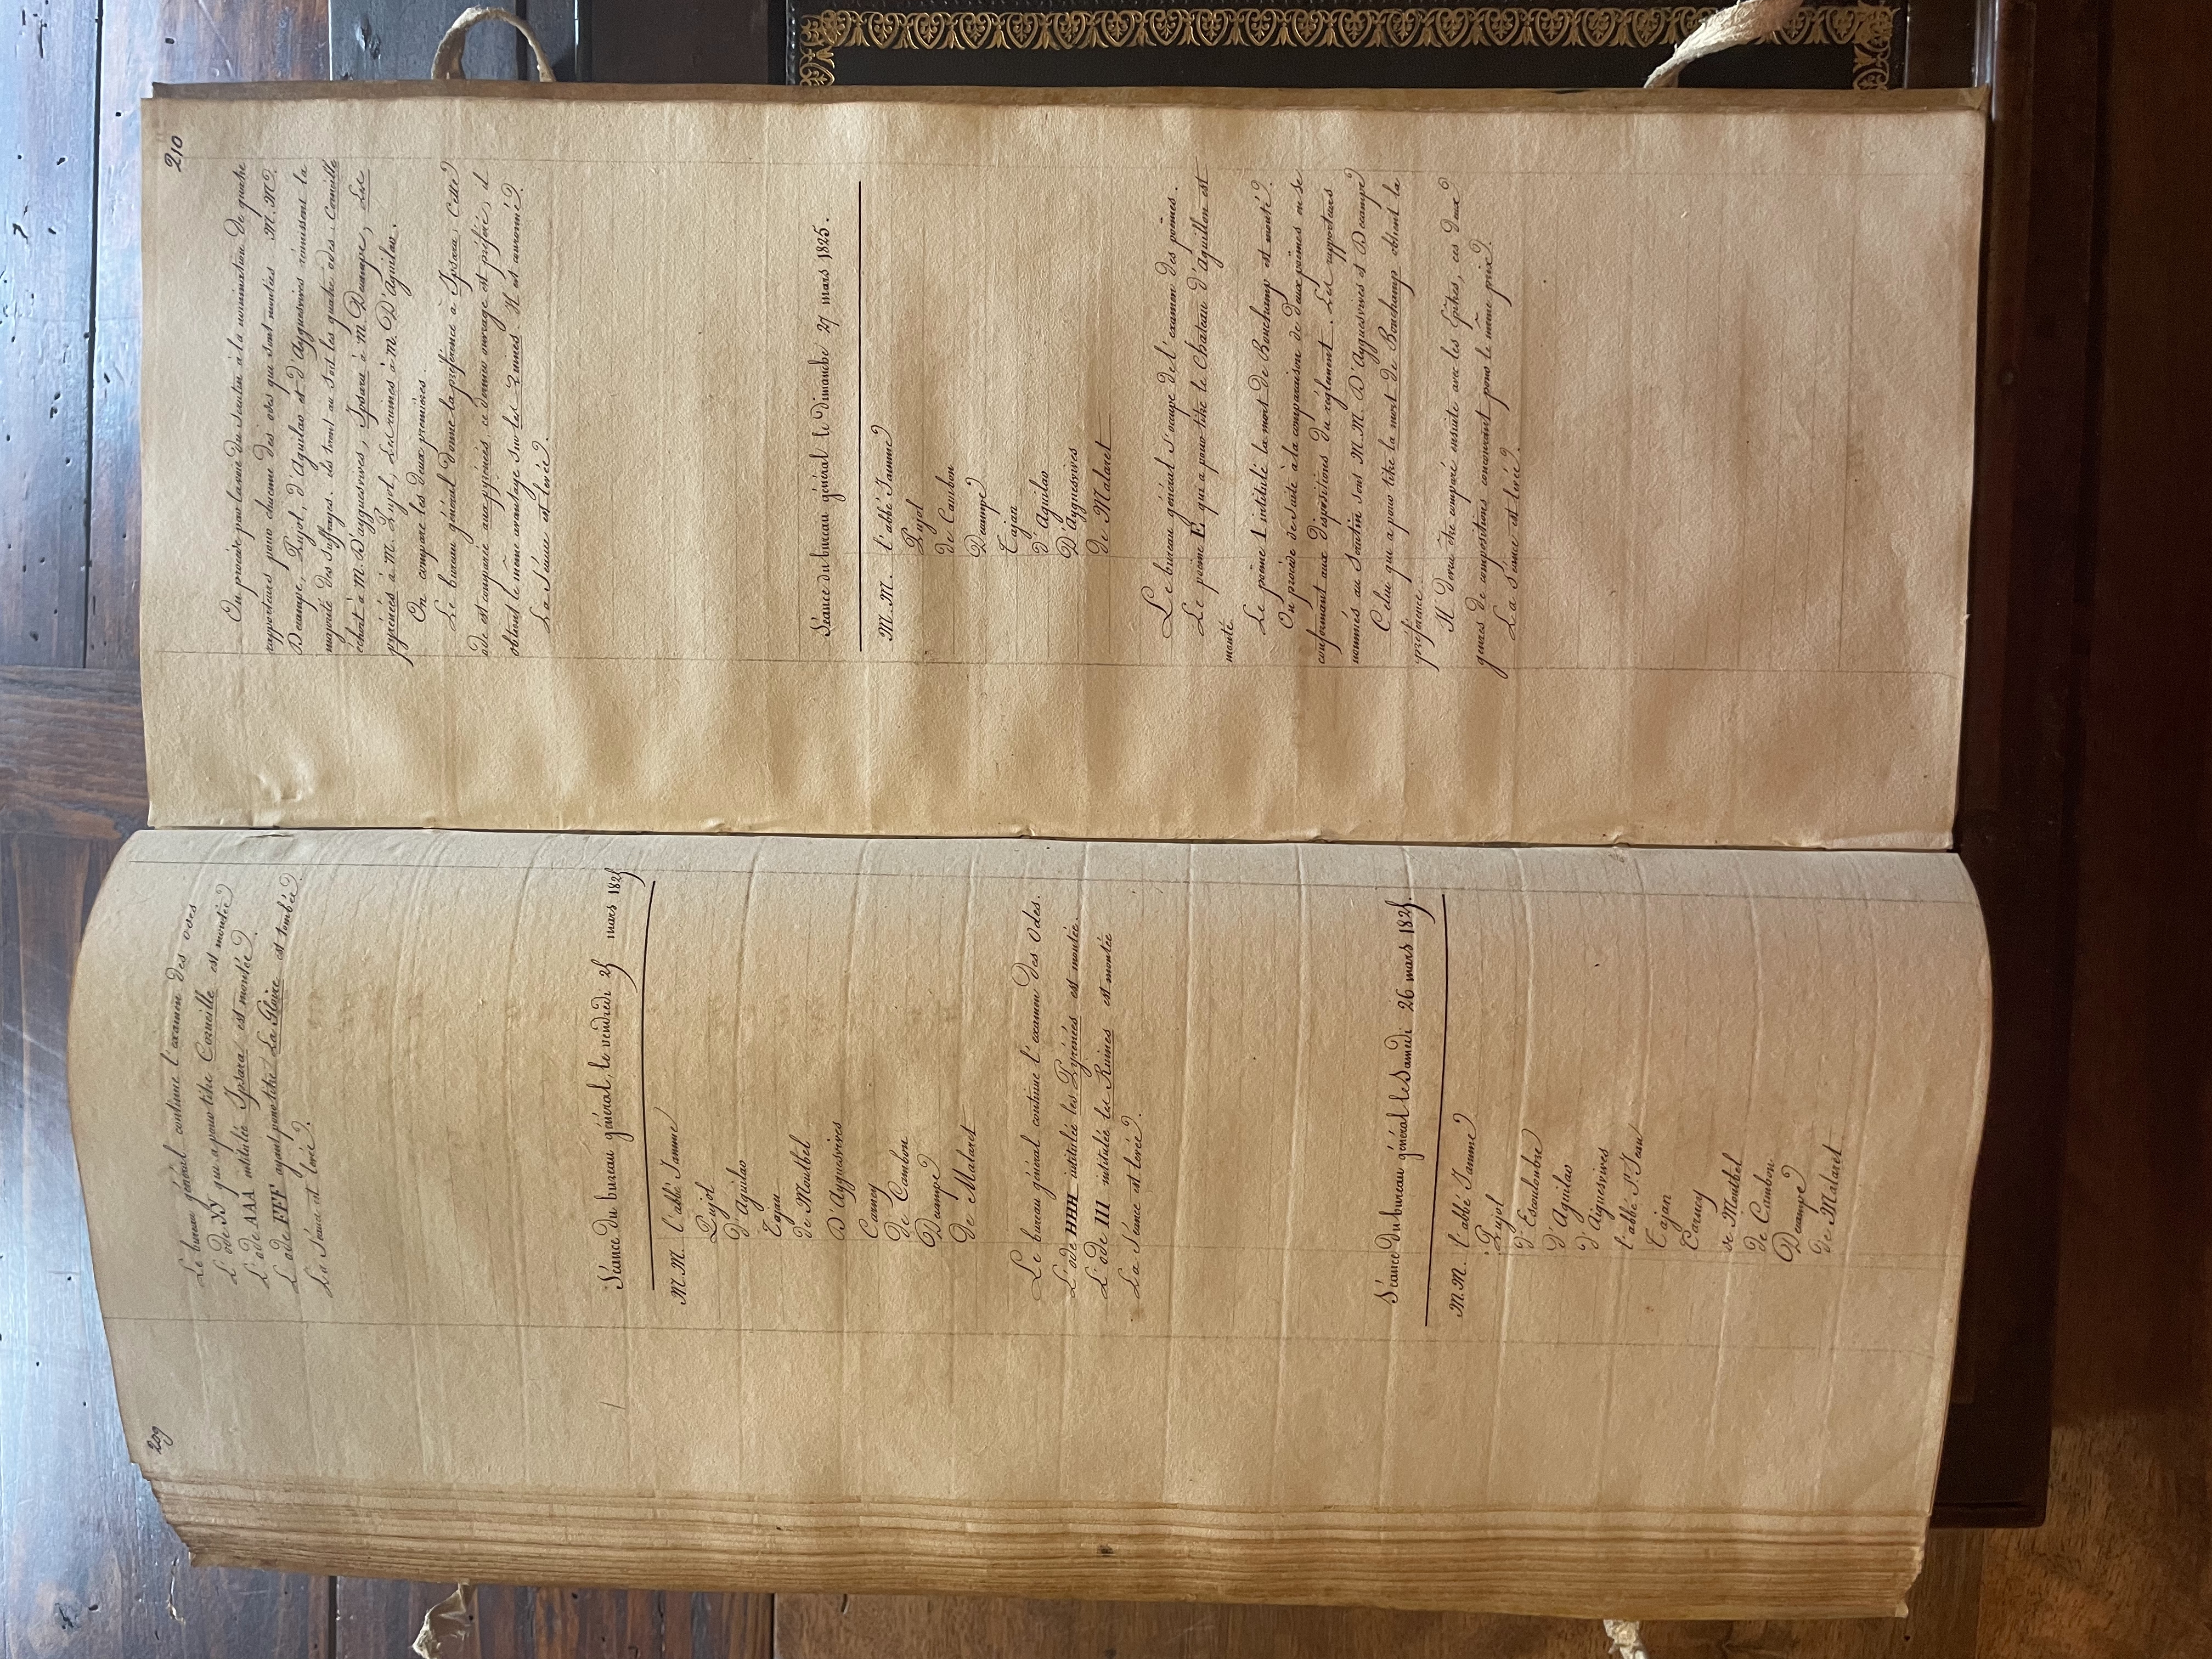 209
Le bureau général continue l'examen des odes
L'ode YY qui a pour titre Corneille est montée
L'ode AAA intitulée Ipsara est montée.
L'ode FFF ayant pour titre La Gloire est tombée.
La Séance est levée.
Séance du bureau général, le vendredi 25 mars 1825
M.M. l'abbé Jamme
Pujol
D'Aguilar
Tajan
de Montbel
D'Ayguesvives
Carney
de Cambon
Decampe
de Malaret
Le bureau général continue l'examen des Odes.
L'ode HHH intitulée les Pyrénées est montée.
L'ode III intitulée les Ruines est montée
La Séance est levée.
Séance du bureau général le Samedi 26 mars 1825.
M.M. l'abbé Jamme
Pujol
d'Escouloubre
d'Aguilar
d'Aiguesvives
l'abbé St Jean
Tajan
Carney
de Montbel
de Cambon
Decampe
de Malaret
210
On procède par la voie du scrutin à la nomination de quatre
rapporteurs pour chacune des odes qui sont montées M.M.
Decampe, Pujol, d'Aguilar et d'Ayguesvives réunissent la
majorité des suffrages. ils tirent au sort les quatre odes. Corneille
échoit à M. D'ayguesvives, Ipsara à M. Decampe, Les
pyrénées à M. Pujol, Les ruines à M. D'Aguilar.
On compare les deux premières.
Le bureau général donne la préférence à Ipsara, Cette
ode est comparée aux pyrénées ce dernier ouvrage est préféré, il
obtient le même avantage sur les Ruines. Il est couronné.
La Séance est levée.
Séance du bureau général le Dimanche 27 mars 1825.
M.M. l'abbé Jamme
Pujol
de Cambon
Decampe
Tajan
d'Aguilar
D'Ayguesvives
de Malaret
Le bureau général s'occupe de l'examen des poëmes.
Le poëme E, qui a pour titre le Chateau d'Aguillon est
monté.
Le poëme I intitulé la mort de Bonchamp est monté.
On procède de suite à la comparaison de deux poëmes en se
conformant aux dispositions du règlement. Les rapporteurs
nommés au Scrutin sont M.M. D'Ayguesvives et Decampe
Celui qui a pour titre la mort de Bonchamp obtient la
préférence.
Il devra être comparé ensuite avec les Epîtres, ces deux
genres de compositions concourant pour le même prix.
La Séance est levée.